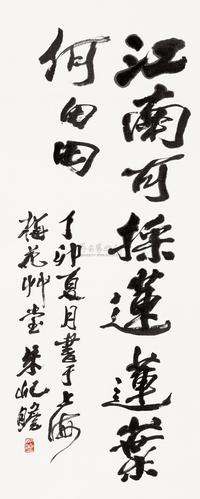 江南可採蓮蓮葉
何田田
丁卯夏月書于上海
梅花艸堂朱屺瞻